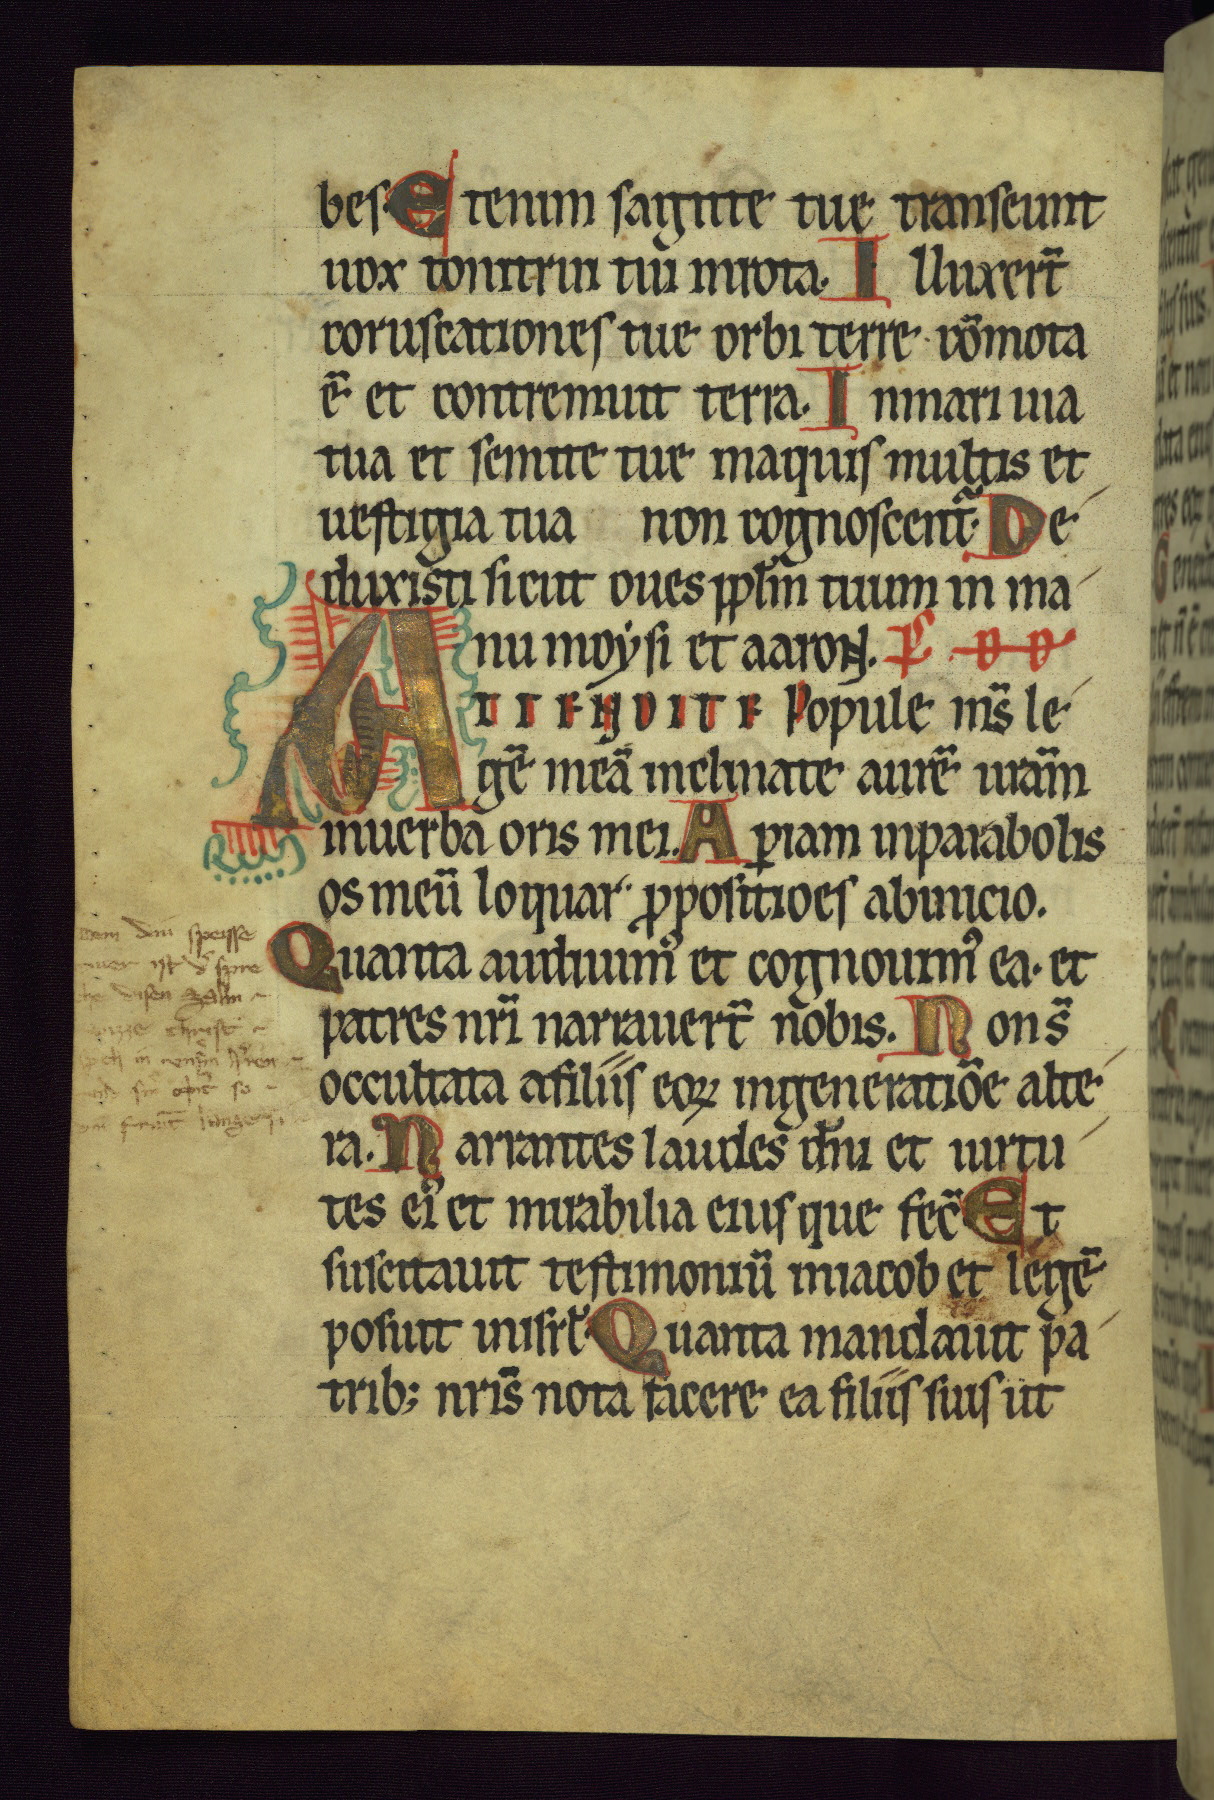 bes· Etenim sagitte tue transeunt
uox tonitrui tui inrota. Illuxert̄
coruscationes tue orbi terre· cōmota
ē et contremuit terra. Inmari uia
tua et semite tue inaquis multis et
uestigia tua non cognoscent᷑. De
duxisti sicut oues pp̄lm tuum in ma
nu moẏsi et aaron.
ATTENDITE Popule ms̄ le
gē meā inclinate aurē urām
inuerba oris mei. Aꝑiam inparabolis
os meū loquar· ꝓpositioēs abinicio.
Quanta audiuim᷒ et cognouim᷒ ea· et
patres nr̄i narrauert̄ nobis. Non s̄
occultata afiliis eoꝝ ingeneratiōe alte
ra. Narrantes laudes dn̄i et uirtu
tes ei᷒ et mirabilia eius que fec̄ Et
suscitauit testimoniū iniacob et legē
posuit inisrl̄· Quanta mandauit pa
trib; nr̄is nota facere ea filiis suis ut